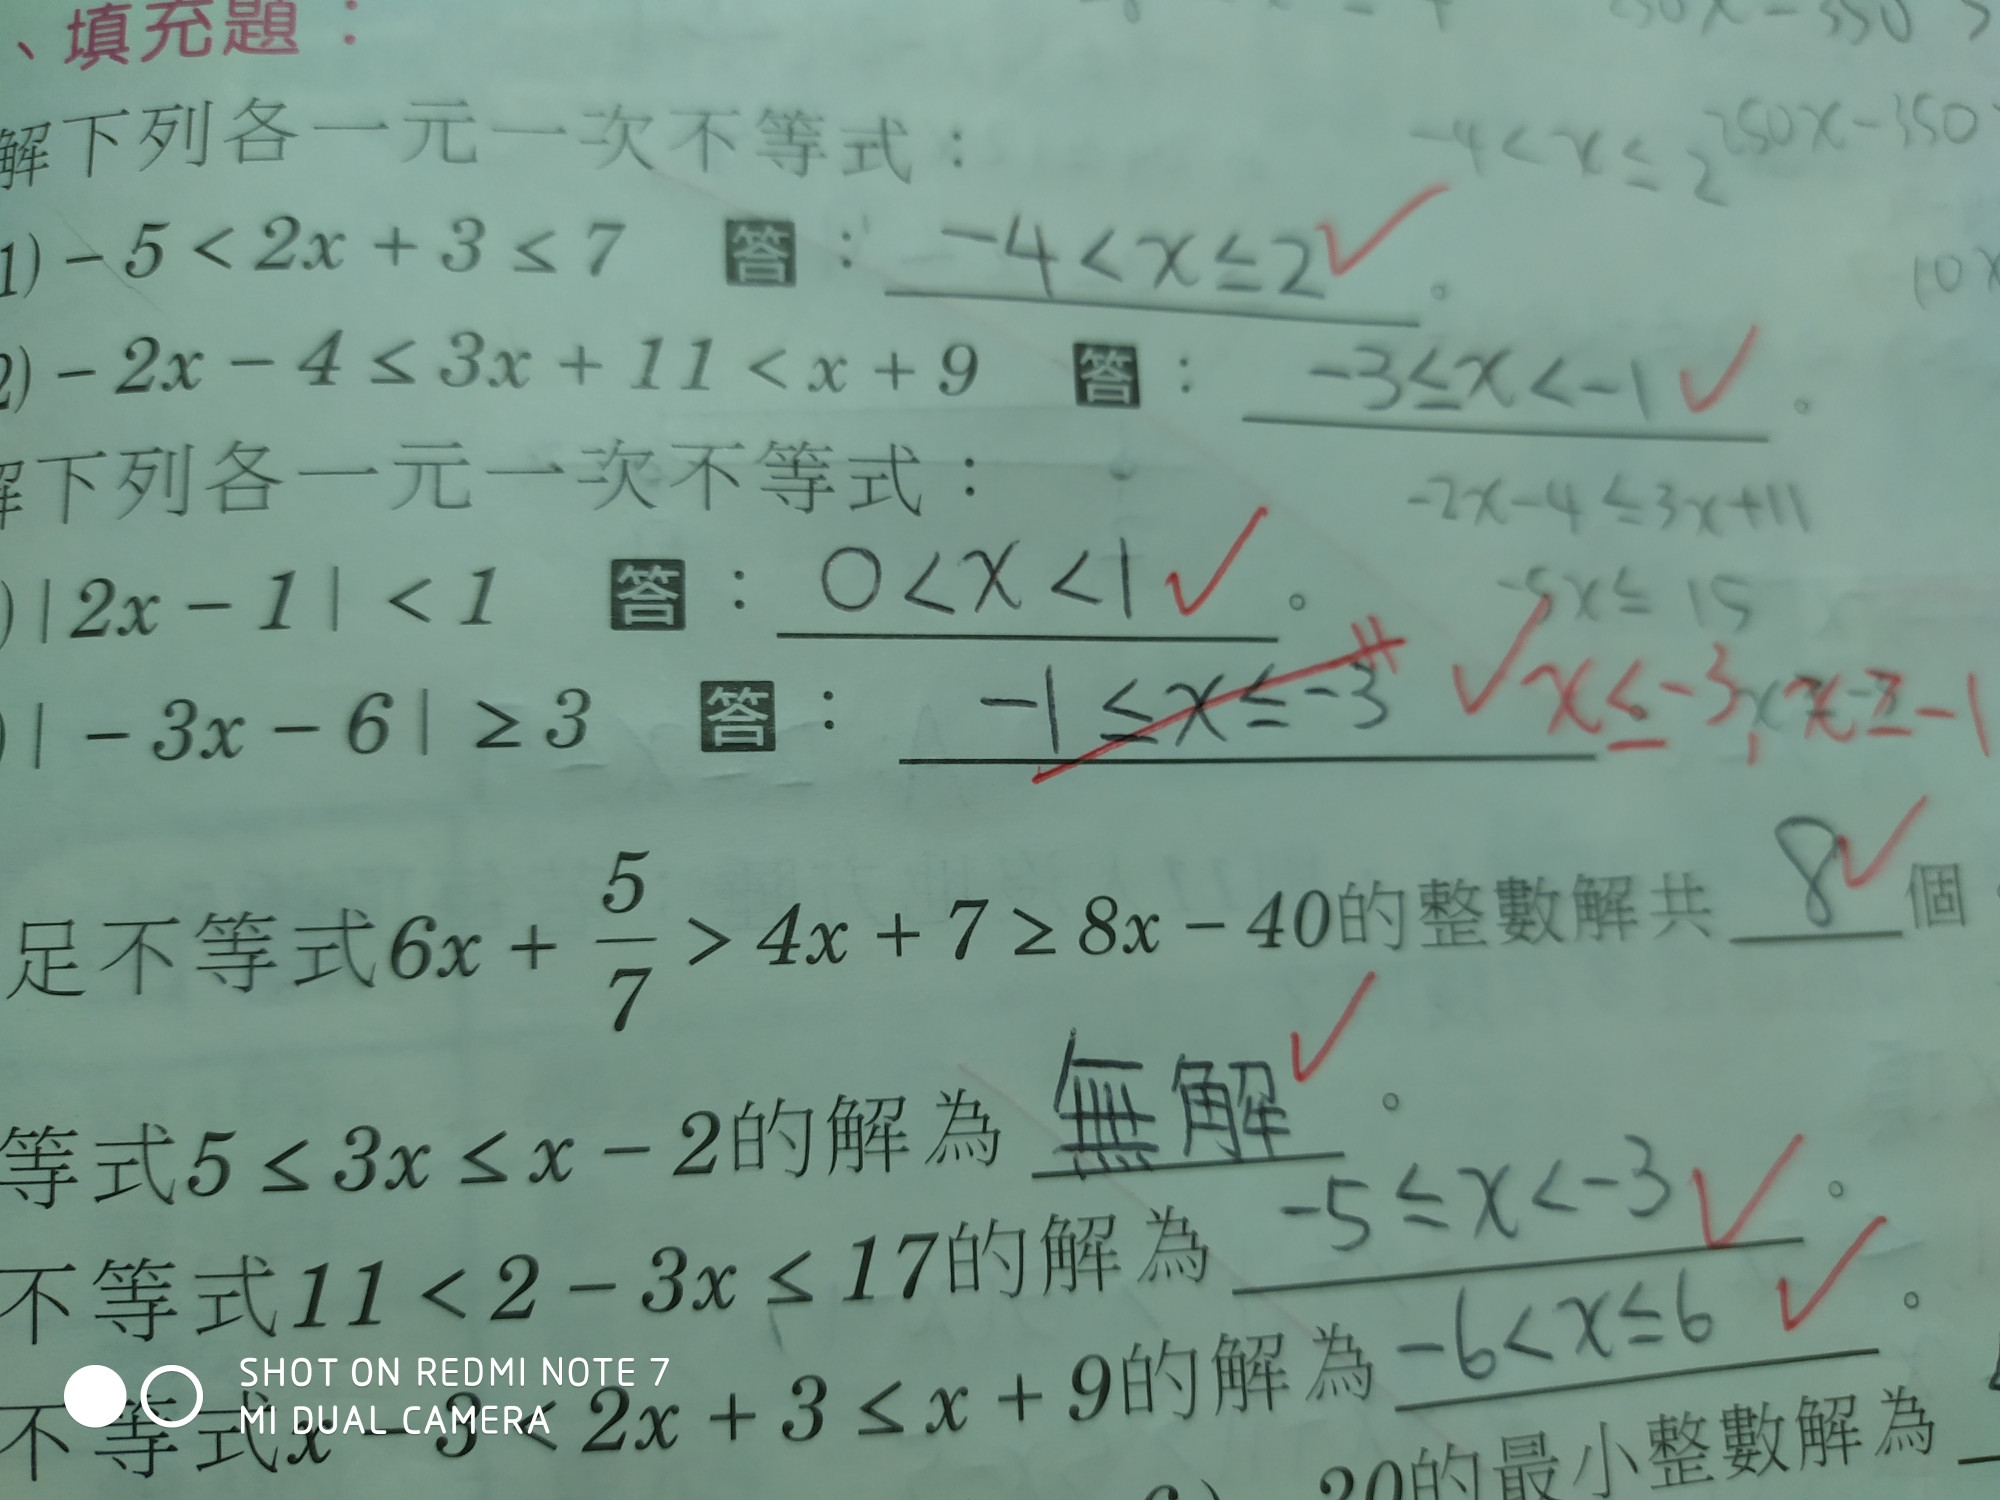 、填充題：
250x-350>
解下列各一元一次不等式：
-4<x≤2
250x-350
1) -5<2x+3≤7 答： -4<x≤2✓。
10x
2) -2x-4≤3x+11<x+9 答： -3≤x<-1✓。
解下列各一元一次不等式：
-2x-4≤3x+11
) |2x-1|<1 答： 0<x<1✓。
-5x≤15
) |-3x-6|≥3 答： -1≤x≤-3 ✓x≤-3, x≥-1
足不等式6x+5/7>4x+7≥8x-40的整數解共 8✓ 個
等式5≤3x≤x-2的解為 無解✓。
不等式11<2-3x≤17的解為 -5≤x<-3✓。
不等式x-3<2x+3≤x+9的解為 -6<x≤6✓。
20的最小整數解為
SHOT ON REDMI NOTE 7
MI DUAL CAMERA